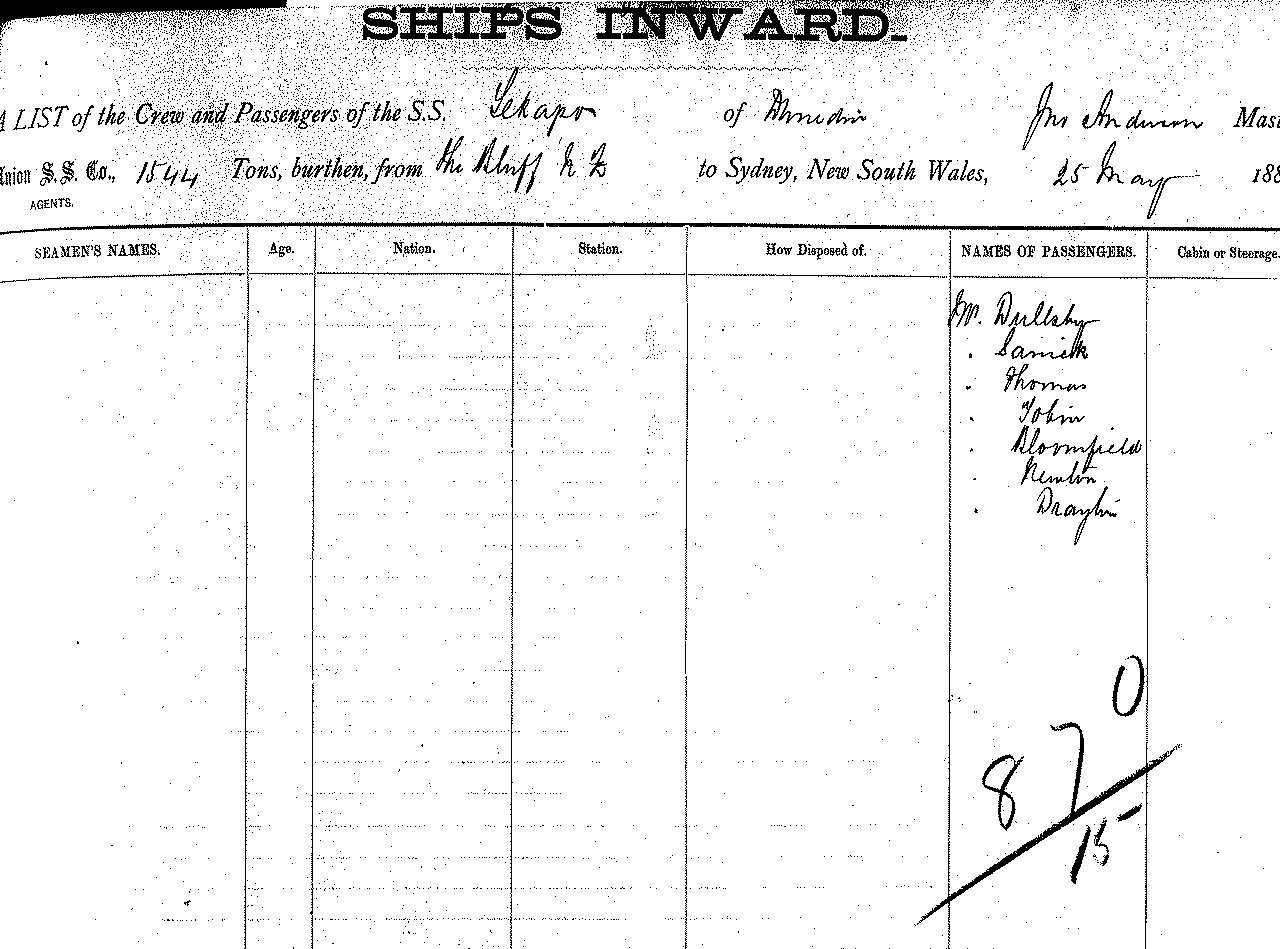 SHIPS INWARD.
A LIST of the Crew and Passengers of the S.S. Tekapo of Dunedin Jno Anderson Mast
Union S.S. Co., 1544 Tons, burthen, from the Bluff N Z to Sydney, New South Wales, 25 May 188
AGENTS.
SEAMEN'S NAMES. Age. Nation. Station. How Disposed of. NAMES OF PASSENGERS. Cabin or Steerage.
Mr.
Thomas
Tobin
Bloomfield
Newton
Drayton
8 7 0
15